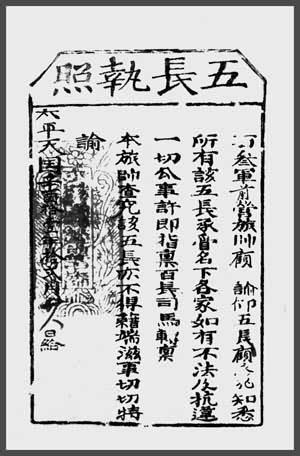 五長執照
叁軍前營旅帥顧 諭仰五長顧知悉
所有該五長承管名下各家如有不法及抗違
一切公事許即指稟百長司馬轉稟
本旅帥查究該五長亦不得藉端滋事切切特
諭
太平天国辛酉拾壹年拾月日給